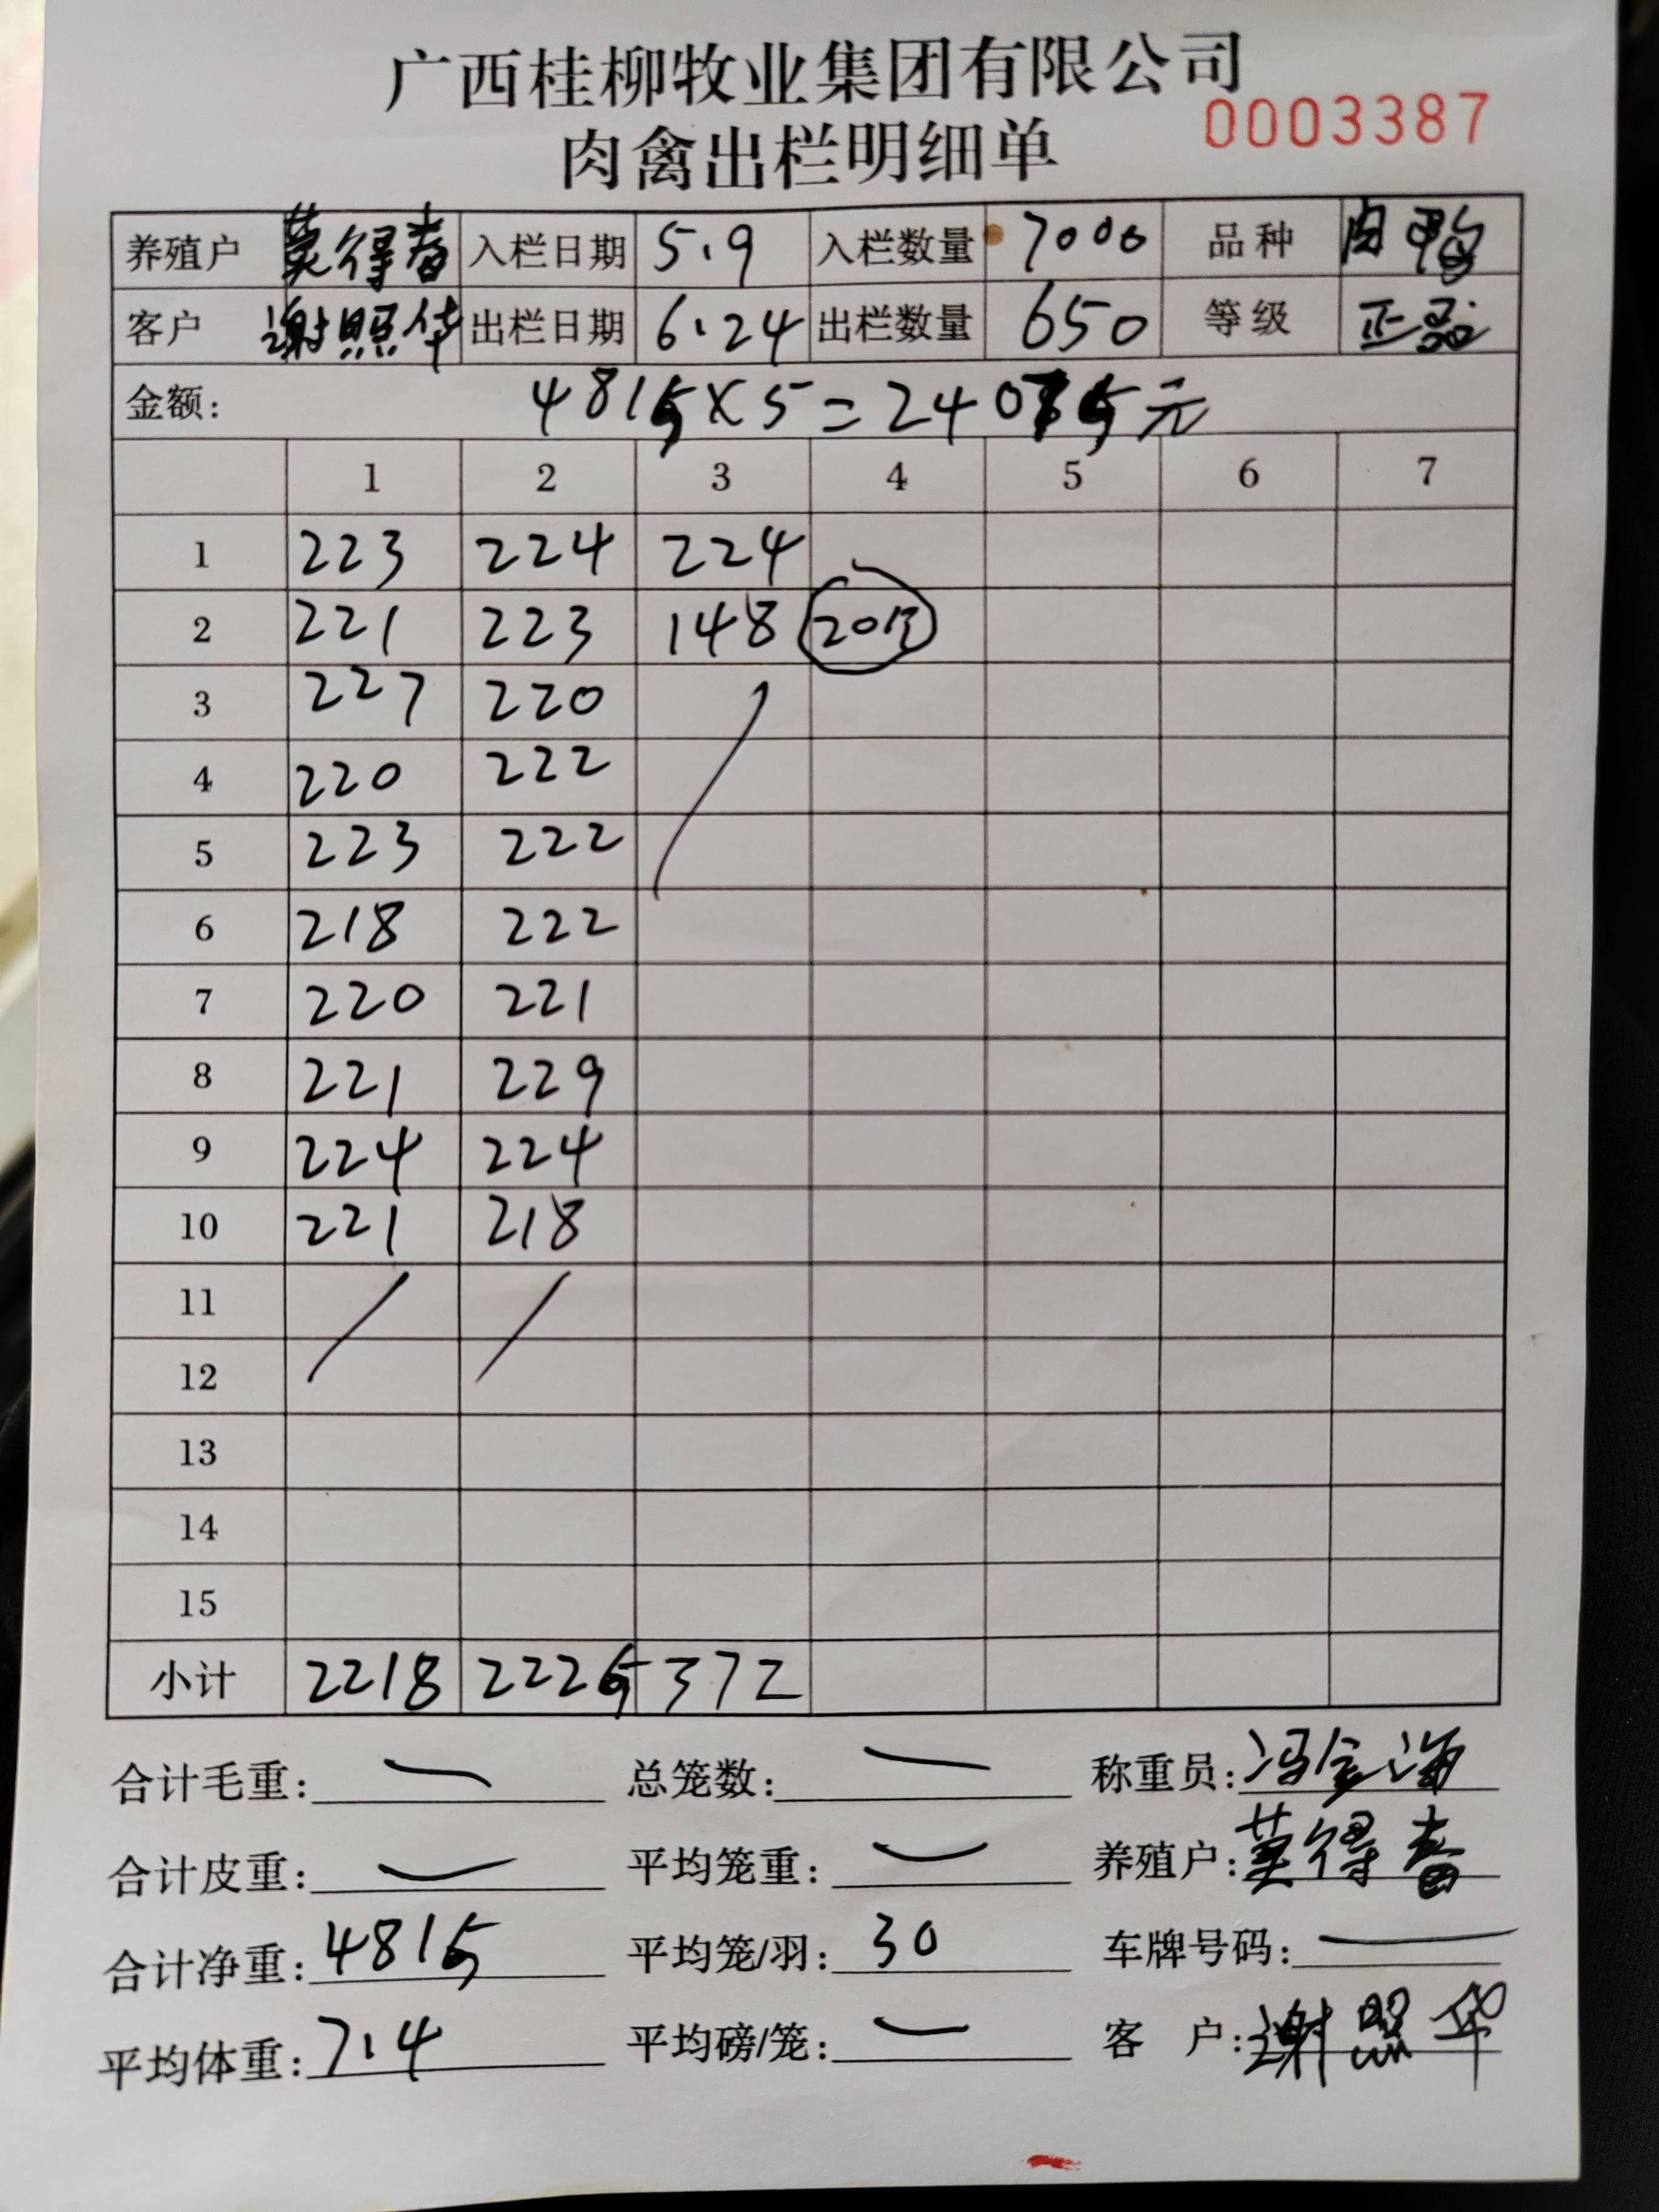 广西桂柳牧业集团有限公司
肉禽出栏明细单 0003387
养殖户 莫得春 入栏日期 5.9 入栏数量 7000 品种 肉鸭
客户 谢照华 出栏日期 6.24 出栏数量 650 等级 正品
金额: 4815×5=24075元
1 2 3 4 5 6 7
1 223 224 224
2 221 223 148 20只
3 227 220
4 220 222
5 223 222
6 218 222
7 220 221
8 221 229
9 224 224
10 221 218
11
12
13
14
15
小计 2218 2225 372
合计毛重: 总笼数: 称重员: 冯宝海
合计皮重: 平均笼重: 养殖户: 莫得春
合计净重: 4815 平均笼/羽: 30 车牌号码:
平均体重: 7.4 平均磅/笼: 客户: 谢照华